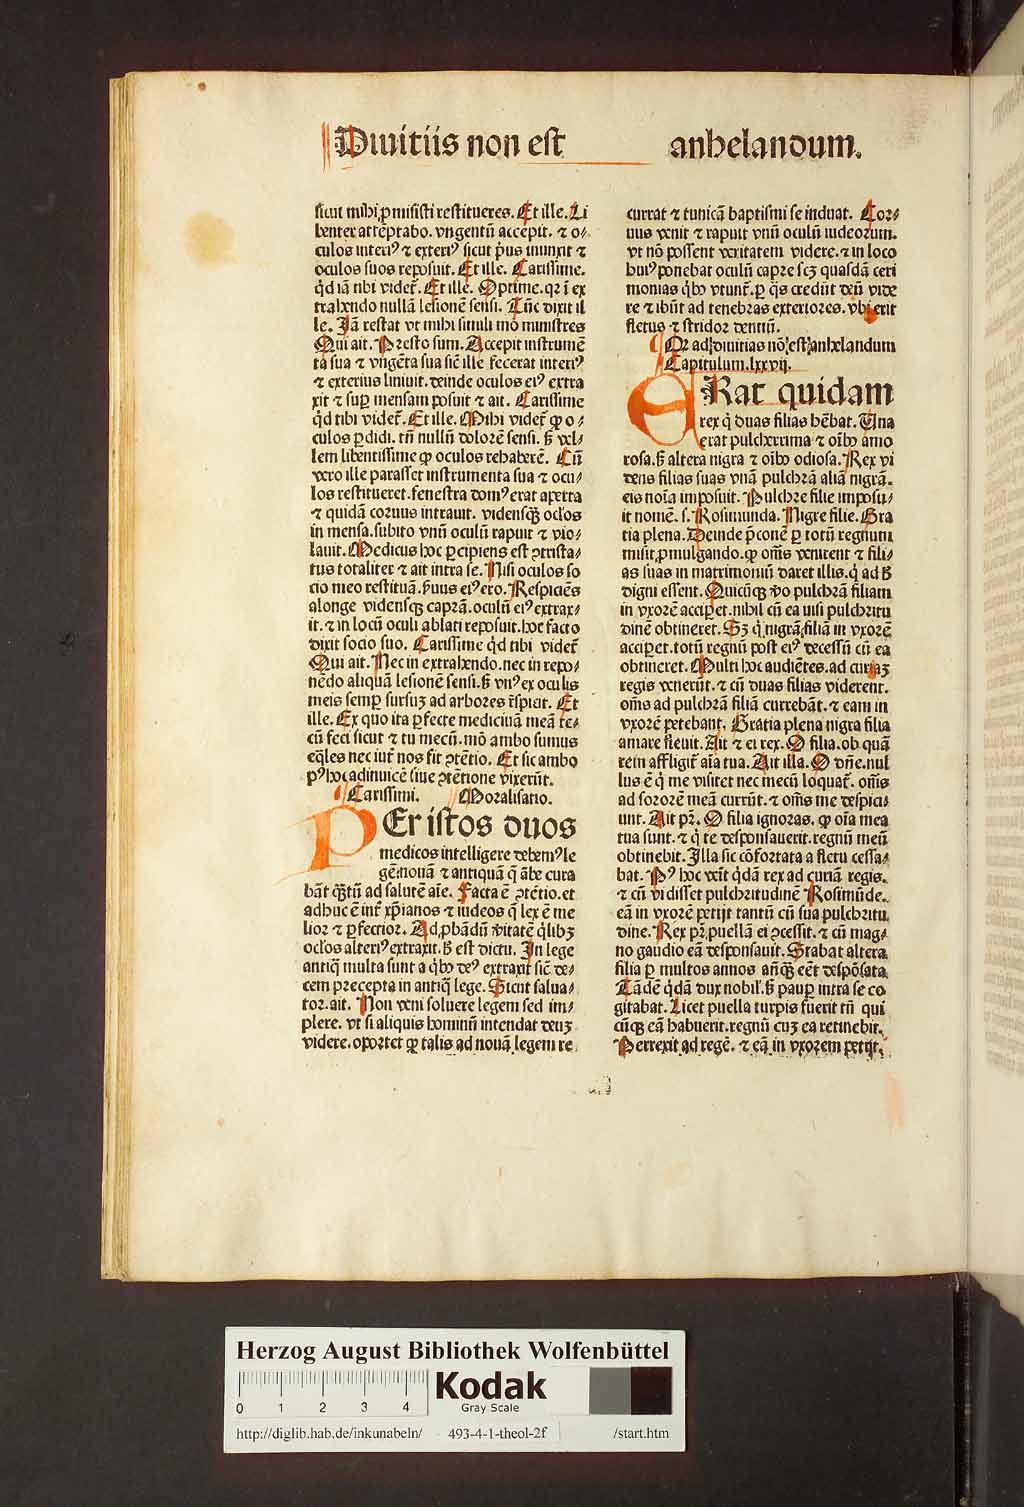 Diuitiis non est anhelandum.
sicut mihi ꝓmisisti restitueres. Et ille. Li
benter attẽptabo. vngentũ accepit. ⁊ o⸗
culos interiꝰ ⁊ exteriꝰ sicut p̃us inunxit ⁊
oculos suos reposuit. Et ille. Carissime.
qͥd iã tibi videt̃. Et ille. Optime. qꝛ ĩ ex
trahendo nullã lesionẽ sensi. Tũc dixit il
le. Iã restat vt mihi simili mõ ministres
Qui ait. Presto sum. Accepit instrumẽ
ta sua ⁊ vngẽta sua sic̃ ille fecerat interiꝰ
⁊ exterius liniuit. deinde oculos eiꝰ extra
xit ⁊ suꝑ mensam posuit ⁊ ait. Carissime
qͥd tibi videt̃. Et ille. Mihi videt̃ ꝙ o⸗
culos ꝑdidi. tñ nullũ dolorẽ sensi. sꝫ vel⸗
lem libentissime ꝙ oculos rehaberẽ. Cũ
vero ille parasset instrumenta sua ⁊ ocu⸗
los restitueret. fenestra domꝰ erat aperta
⁊ quidã coruus intrauit. vidensqꝫ oc̃los
in mensa. subito vnũ oculũ rapuit ⁊ vio⸗
lauit. Medicus hoc ꝑcipiens est ↄtrista⸗
tus totaliter ⁊ ait intra se. Nisi oculos so
cio meo restituã. ẜuus eiꝰ ero. Respiciẽs
a longe vidensqꝫ caprã. oculũ eiꝰ extrax⸗
it. ⁊ in locũ oculi ablati reposuit. hoc facto
dixit socio suo. Carissime qͥd tibi videt̃
Qui ait. Nec in extrahendo. nec in repo⸗
nẽdo aliquã lesionẽ sensi. sꝫ vnꝰ ex oculis
meis semꝑ sursuꝫ ad arbores r̃spiat. Et
ille. Ex quo ita ꝑfecte mediciuã meã te⸗
cũ feci sicut ⁊ tu mecũ. mõ ambo sumus
eq̃les nec int̃ nos fit ↄtẽtio. Et sic ambo
pꝰ hoc adinuicẽ siue ↄtẽtione vixerũt.
Carissimi. Moralisatio.
PEr istos duos
medicos intelligere debemꝰ le
gẽ nouã ⁊ antiquã q̃ ãbe cura
bãt qͣꝫtũ ad salutẽ aĩe. Facta ẽ ↄtẽtio. et
adhuc ẽ int̃ xp̃ianos ⁊ iudeos q̃ lex ẽ me
lior ⁊ ꝑfectior. Ad ꝓbãdũ ṽitatẽ qͥlibꝫ
oc̃los alteriꝰ extraxit. hͦ est dictu. In lege
antiq̃ multa sunt a qͥbꝰ deꝰ extraxit sic̃ de⸗
cem precepta in antiq̃ lege. Sicut salua⸗
tor. ait. Non veni soluere legem sed im⸗
plere. vt si aliquis hominũ intendat deuꝫ
videre. oportet ꝙ talis ad nouã legem re
currat ⁊ tunicã baptismi se induat. Cor⸗
uus venit ⁊ rapuit vnũ oculũ iudeorum.
vt nõ possent veritatem videre. ⁊ in loco
huiꝰ ponebat oculũ capre scꝫ quasdã ceri
monias qͥbꝰ vtunt̃. ꝑ q̃s credũt deũ vide
re ⁊ ibũt ad tenebras exteriores. vbi erit
fletus ⁊ stridor dentiũ.
Qꝛ ad diuitias nõ est anhelandum
Capitulum. lxxvij.
ERat quidam
rex qͥ duas filias hẽbat. Una
erat pulcherrima ⁊ oĩbꝰ amo
rosa. sꝫ altera nigra ⁊ oĩbꝰ odiosa. Rex vi
dens filias suas vnã pulchrã aliã nigrã.
eis noĩa imposuit. Pulchre filie imposu⸗
it nomẽ. s. Rosimunda. Nigre filie. Gra
tia plena. Deinde p̃conẽ ꝑ totũ regnum
misit ꝓmulgando. ꝙ om̃s venirent ⁊ fili⸗
as suas in matrimoniũ daret illis. qͥ ad hͦ
digni essent. Quicũqꝫ ṽo pulchrã filiam
in vxorẽ acciꝑet. nihil cũ ea uisi pulchritu
dinẽ obtineret. Sꝫ qͥ nigrã filiã in vxorẽ
acciꝑet. totũ regnũ post eiꝰ decessũ cũ ea
obtineret. Multi hoc audiẽtes. ad curiaꝫ
regis venerũt. ⁊ cũ duas filias viderent.
om̃s ad pulchrã filiã currebãt. ⁊ eam in
vxorẽ petebant. Gratia plena nigra filia
amare fleuit. Ait ⁊ ei rex. O filia. ob quã
rem affligit̃ aĩa tua. Ait illa. O dñe. nul
lus ẽ qͥ me visitet nec mecũ loquat̃. om̃s
ad sororẽ meã currũt. ⁊ om̃s me despici⸗
unt. Ait pr̃. O filia ignoras. ꝙ oĩa mea
tua sunt. ⁊ qͥ te desponsauerit. regnũ meũ
obtinebit. Illa sic cõfortata a fletu cessa⸗
bat. Pꝰ hoc veĩt qͥdã rex ad curiam regis.
⁊ cũ vidisset pulchritudinẽ Rosimũde.
eã in vxorẽ petijt tantũ cũ sua pulchritu
dine. Rex pr̃. puellã ei ↄcessit. ⁊ cũ mag⸗
no gaudio eã desponsauit. Stabat altera
filia ꝑ multos annos añqͣꝫ eẽt despõsata
Tãdẽ qͥdã dux nobil̃. sꝫ pauꝑ intra se co
gitabat. Licet puella turpis fuerit tñ qui
cũqꝫ eã habuerit. regnũ cuꝫ ea retinebit.
Perrexit ad regẽ. ⁊ eã in vxorem petijt.
Herzog August Bibliothek Wolfenbüttel
0 1 2 3 4
Kodak
Gray Scale
http://diglib.hab.de/inkunabeln/ 493-4-1-theol-2f /start.htm